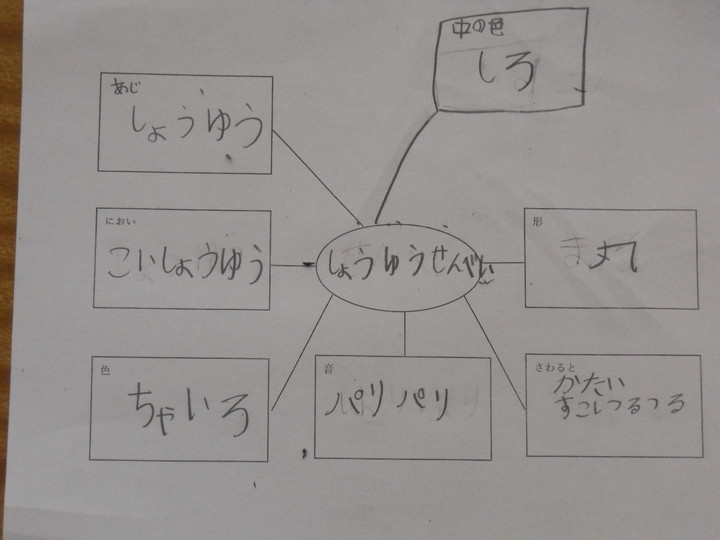 中の色
しろ
あじ
しょうゆう
におい
こいしょうゆう
しょうゆうせんべい
形
丸
色
ちゃいろ
音
パリパリ
さわると
かたい
すこしつるつる